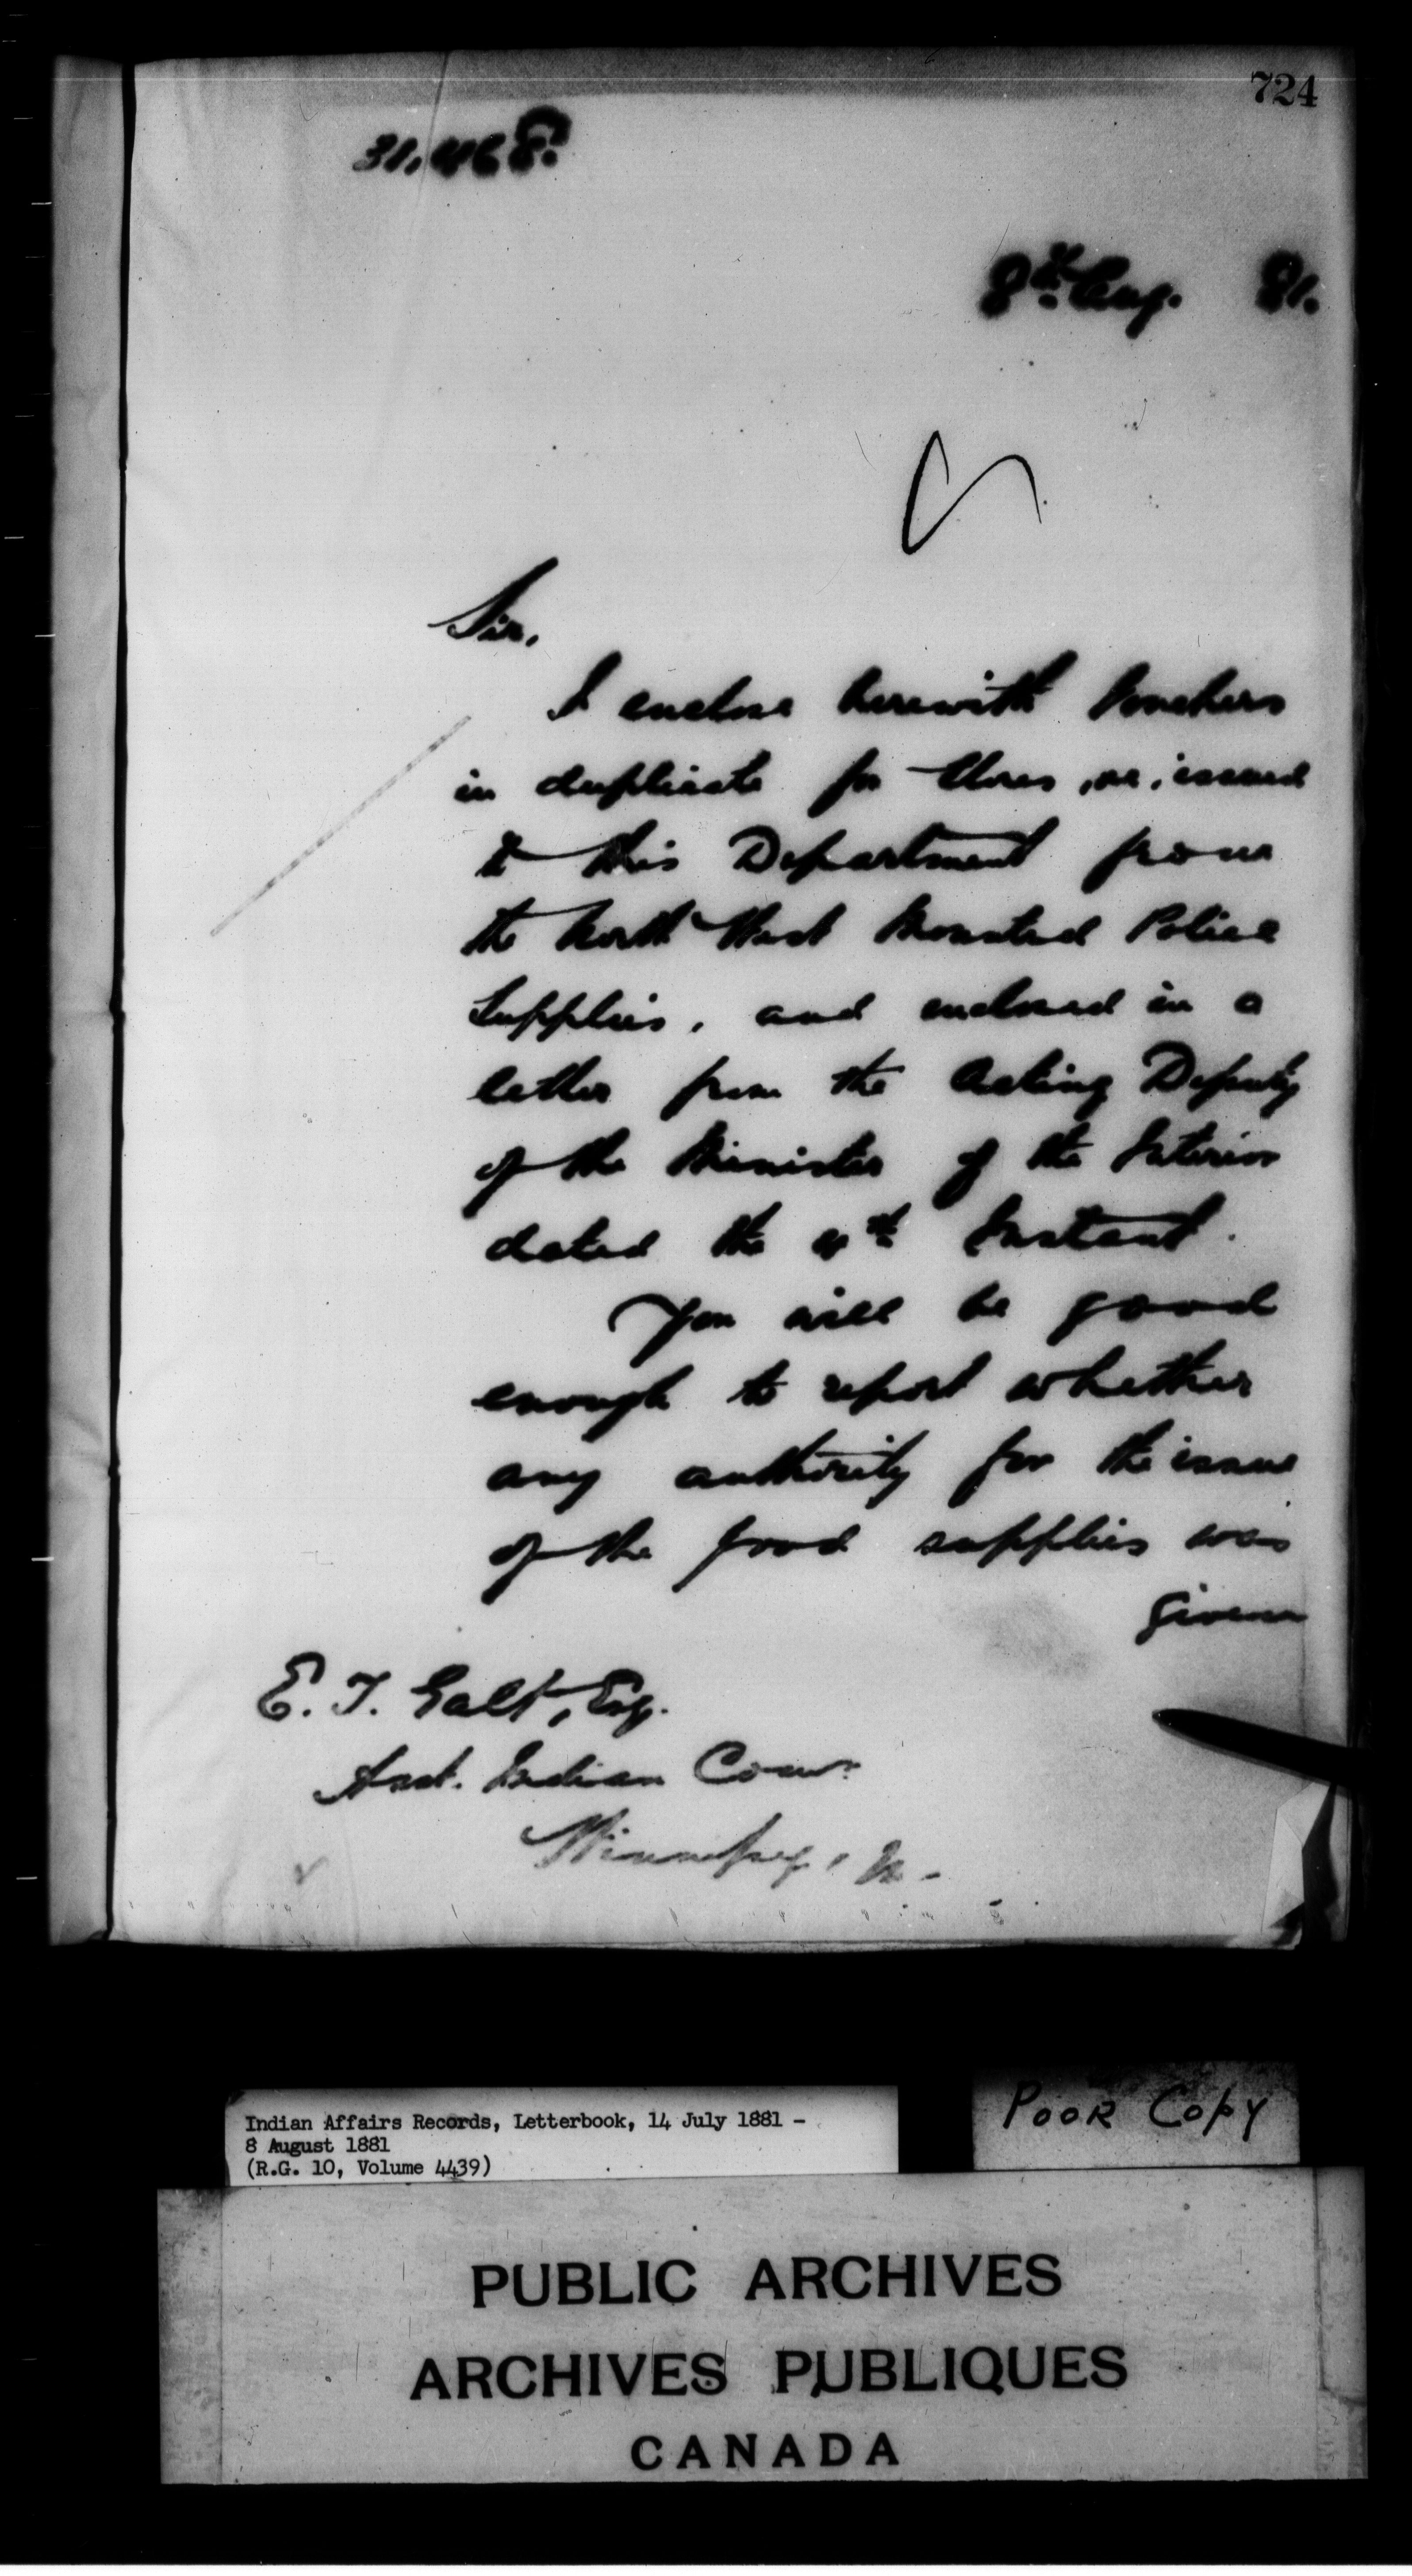 724
31,468.
8th Aug. 81.
Sir,
I enclose herewith Vouchers
in duplicate for Stores, re, issued
to this Department from
the North West Mounted Police
Supplies, and enclosed in a
letter from the Acting Deputy
of the Minister of the Interior
dated the 4th Instant.
You will be good
enough to report whether
any authority for the issue
of the food supplies was
given
E. T. Galt, Esq.
Asst. Indian Comr.
Winnipeg, M.
Indian Affairs Records, Letterbook, 14 July 1881 -
8 August 1881
(R.G. 10, Volume 4439)
POOR COPY
PUBLIC ARCHIVES
ARCHIVES PUBLIQUES
CANADA